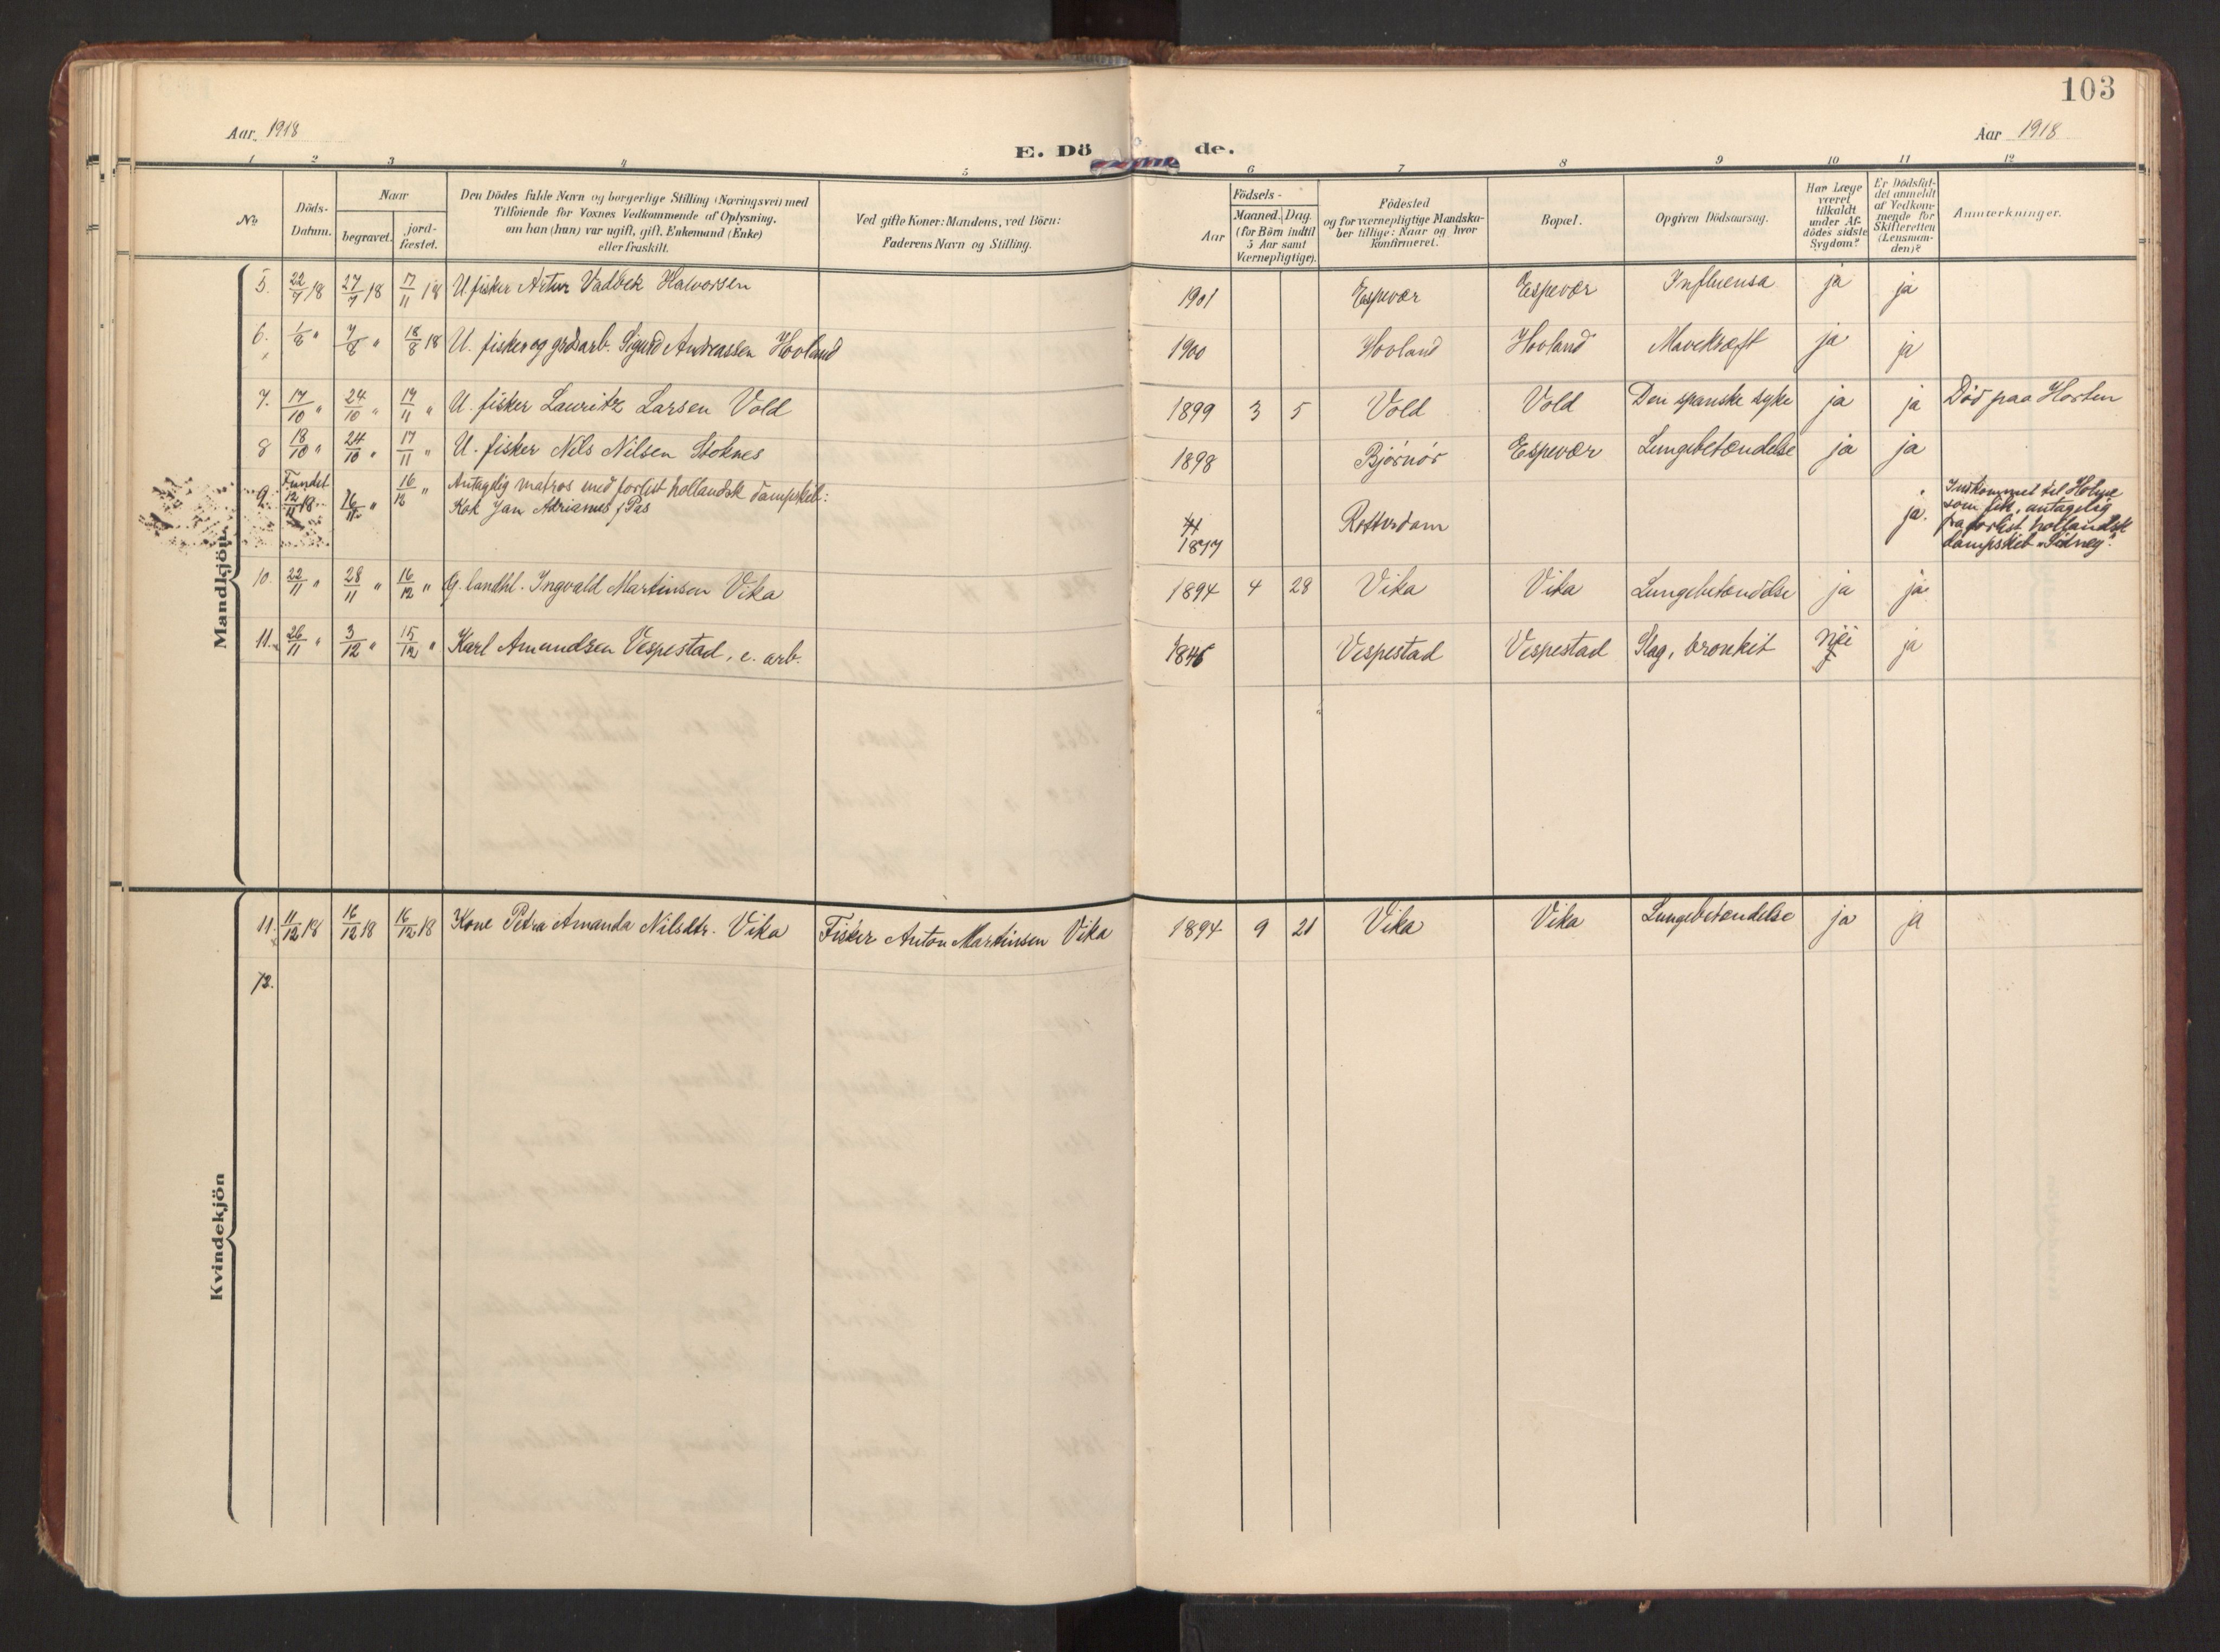 103
Aar 1918
Aar 1918
E. Dö de.
1 2 3 4 5 6 7 8 9 10 11 12
No.
Döds-
Datum.
Naar
begravet.
jord-
fæstet.
Den Dödes fulde Navn og borgerlige Stilling (Næringsvei) med
Tilföiende for Voxnes Vedkommende af Oplysning,
om han (hun) var ugift, gift, Enkemand (Enke)
eller fraskilt.
Ved gifte Koner: Mandens, ved Börn:
Faderens Navn og Stilling.
Födsels-
Aar
Maaned. Dag.
(for Börn indtil
5 Aar samt
Værnepligtige).
Födested
og for værnepligtige Mandska-
ber tillige: Naar og hvor
konfirmeret.
Bopæl.
Opgiven Dödsaarsag.
Har Læge
været
tilkaldt
under Af-
dödes sidste
Sygdom?
Er Dödsfal-
det anmeldt
af Vedkom-
mende for
Skifteretten
(Lensman-
den)?
Anmærkninger.
Mandkjön.
5. 22/7 18 27/7 18 17/11 18 U. fisker Artur Vadbek Halvorsen 1901 Espevær Espevær Influensa ja ja
6. 1/8 " 7/8 " 18/8 18 U. fisker og grdsarb. Sigurd Andreassen Hovland 1900 Hovland Hovland Mavekræft ja ja
7. 17/10 " 24/10 " 19/11 " U. fisker Lauritz Larsen Vold 1899 3 5 Vold Vold Den spanske syke ja ja Död paa Horten
8 18/10 " 24/10 " 17/11 " U. fisker Nils Nilsen Stoknes 1898 Björnör Espevær Lungebetændelse ja ja
9. Fundet 12/11 18. 16/11 " 16/12 " Antagelig matros med forlist hollandsk dampskib:
Kok Jan Adrianus Pas 1877 Rotterdam ja.
Indkommet til Holme
som lik, antagelig
fra forlist hollandsk
dampskib "Sidney".
10. 22/11 " 28/11 " 16/12 " G. landhl. Ingvald Martinsen Vika 1894 4 28 Vika Vika Lungebetændelse ja ja
11. 26/11 " 3/12 " 15/12 " Karl Amundsen Vespestad, e. arb. 1846 Vespestad Vespestad Slag, bronkit nei ja
Kvindekjön
11. 11/12 18 16/12 18 16/12 18 Kone Petra Amanda Nilsdtr. Vika Fisker Anton Martinsen Vika 1894 9 21 Vika Vika Lungebetændelse ja ja
12.